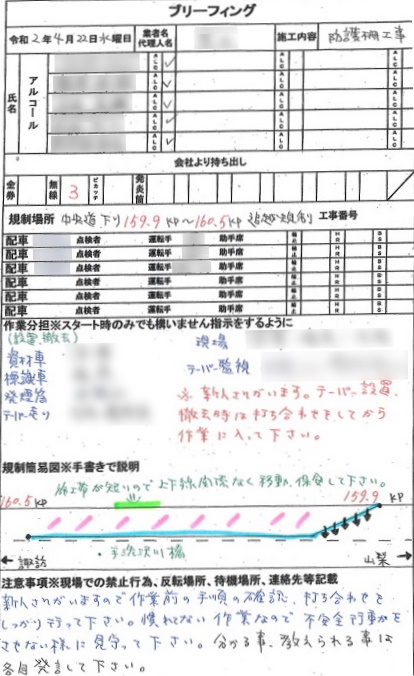 ブリーフィング
令和2年4月22日水曜日 業者名 代理人名 施工内容 防護柵工事
氏名 アルコール ALC ALC ALC
ALC ALC ALC
ALC ALC ALC
ALC ALC ALC
ALC ALC ALC
会社より持ち出し
金券 無線 3 ピカッチ 発炎筒
規制場所 中央道下り159.9KP〜160.5KP 追越規制 工事番号
配車 点検者 運転手 助手席
配車 点検者 運転手 助手席
配車 点検者 運転手 助手席
配車 点検者 運転手 助手席
配車 点検者 運転手 助手席
作業分担※スタート時のみでも構いません指示をするように
(設置、撤去) 現場
資材車 テーパー監視
標識車
発煙筒 ※新人さんがいます。テーパー設置、
テーパー走り 撤去時は打ち合わせをしてから
作業に入って下さい。
規制簡易図※手書きで説明
施工帯が短いので上下線関係なく移動、保食して下さい。
160.5KP 159.9KP
← 諏訪 山梨 →
注意事項※現場での禁止行為、反転場所、待機場所、連絡先等記載
新人さんがいますので作業前の手順の確認、打ち合わせを
しっかり行って下さい。慣れない作業なので不安全行動を
させない様に見守って下さい。分かる事、教えられる事は
各自発言して下さい。